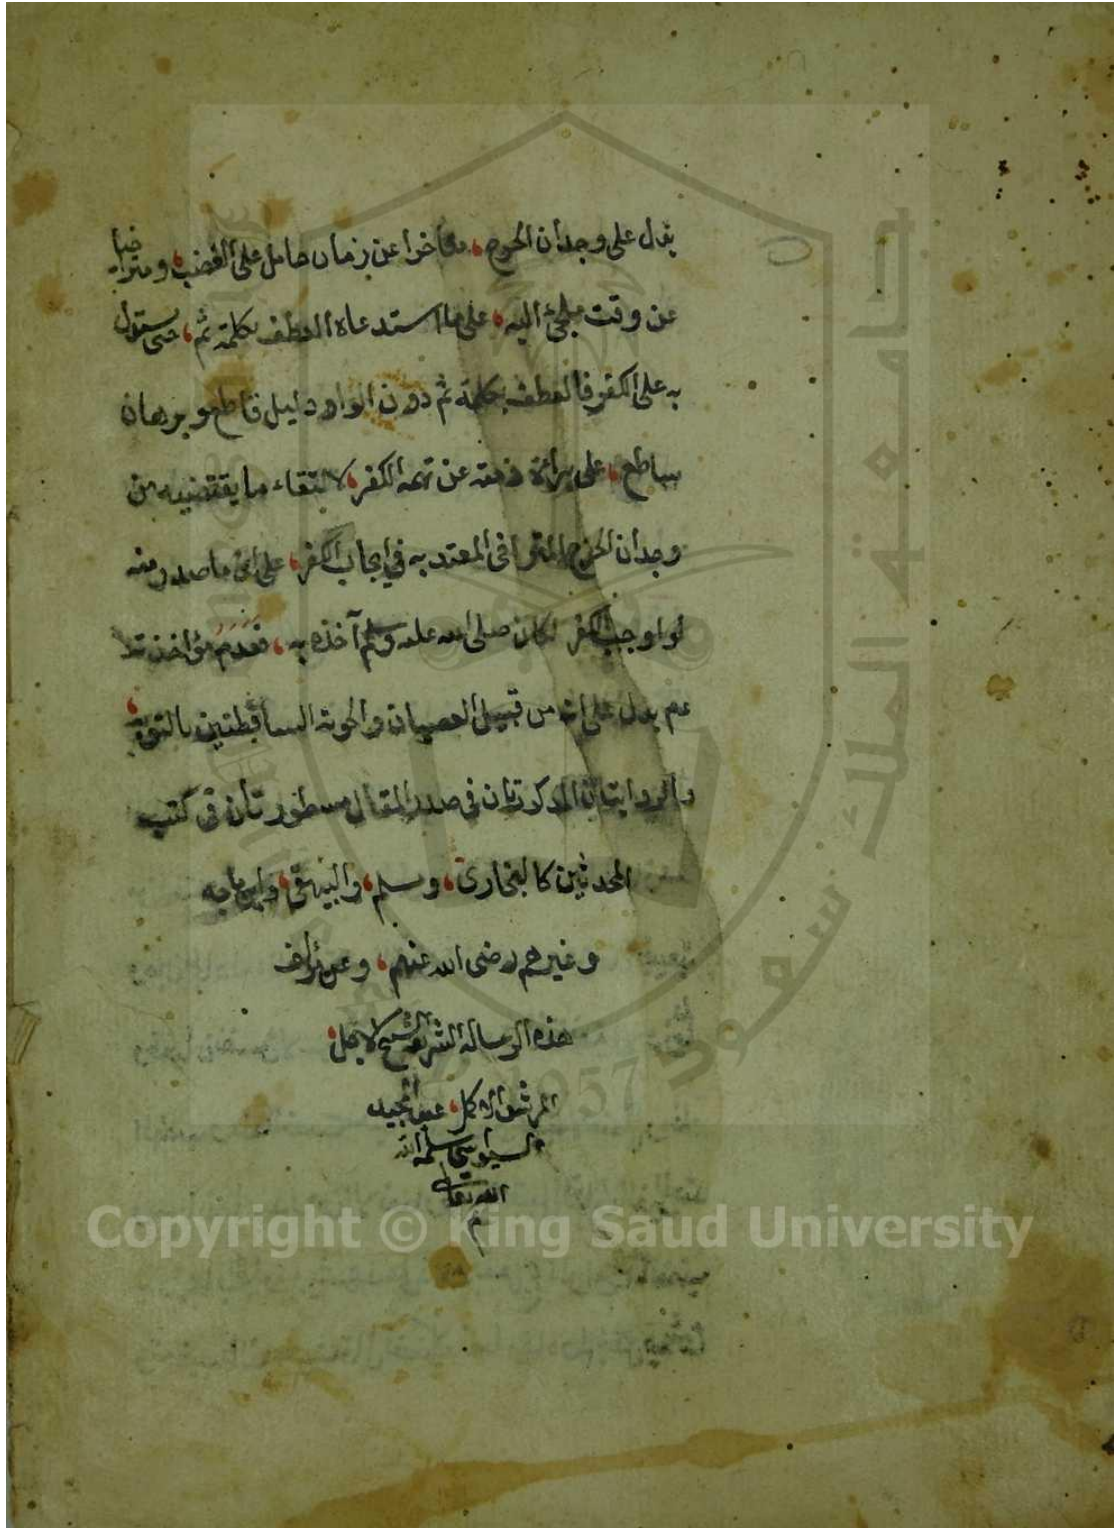 يدل على وجدان الحرج، متأخرا عن زمان حامل على الغضب، ومتراخيا
عن وقت ملجئ اليه، على ما استدعاه العطف بكلمة ثم، حتى يستدل
به على الكفر فالعطف بكلمة ثم دون الواو دليل قاطع وبرهان
ساطع، على براءة ذمته عن تهمة الكفر، لانتفاء ما يقتضيه من
وجدان الحرج المتراخى المعتد به في ايجاب الكفر، على ان ما صدر منه
لو اوجب الكفر لكان صلى الله عليه وسلم آخذه به، فعدم مؤاخذته
عم يدل على انه من قبيل العصيان والحوبة الساقطتين بالتوبة،
والروايتان المذكورتان في صدر المقال مسطورتان في كتب
المحدثين كالبخارى، ومسلم، والبيهقى، وابن ماجه
وغيرهم رضى الله عنهم، وعن مؤلف
هذه الرسالة الشريفة الشيخ الاجل،
المرشد الاكمل، عبد المجيد
السيواسي سلمه الله
الله تعالى
م
جامعة الملك سعود
1957
Copyright © King Saud University